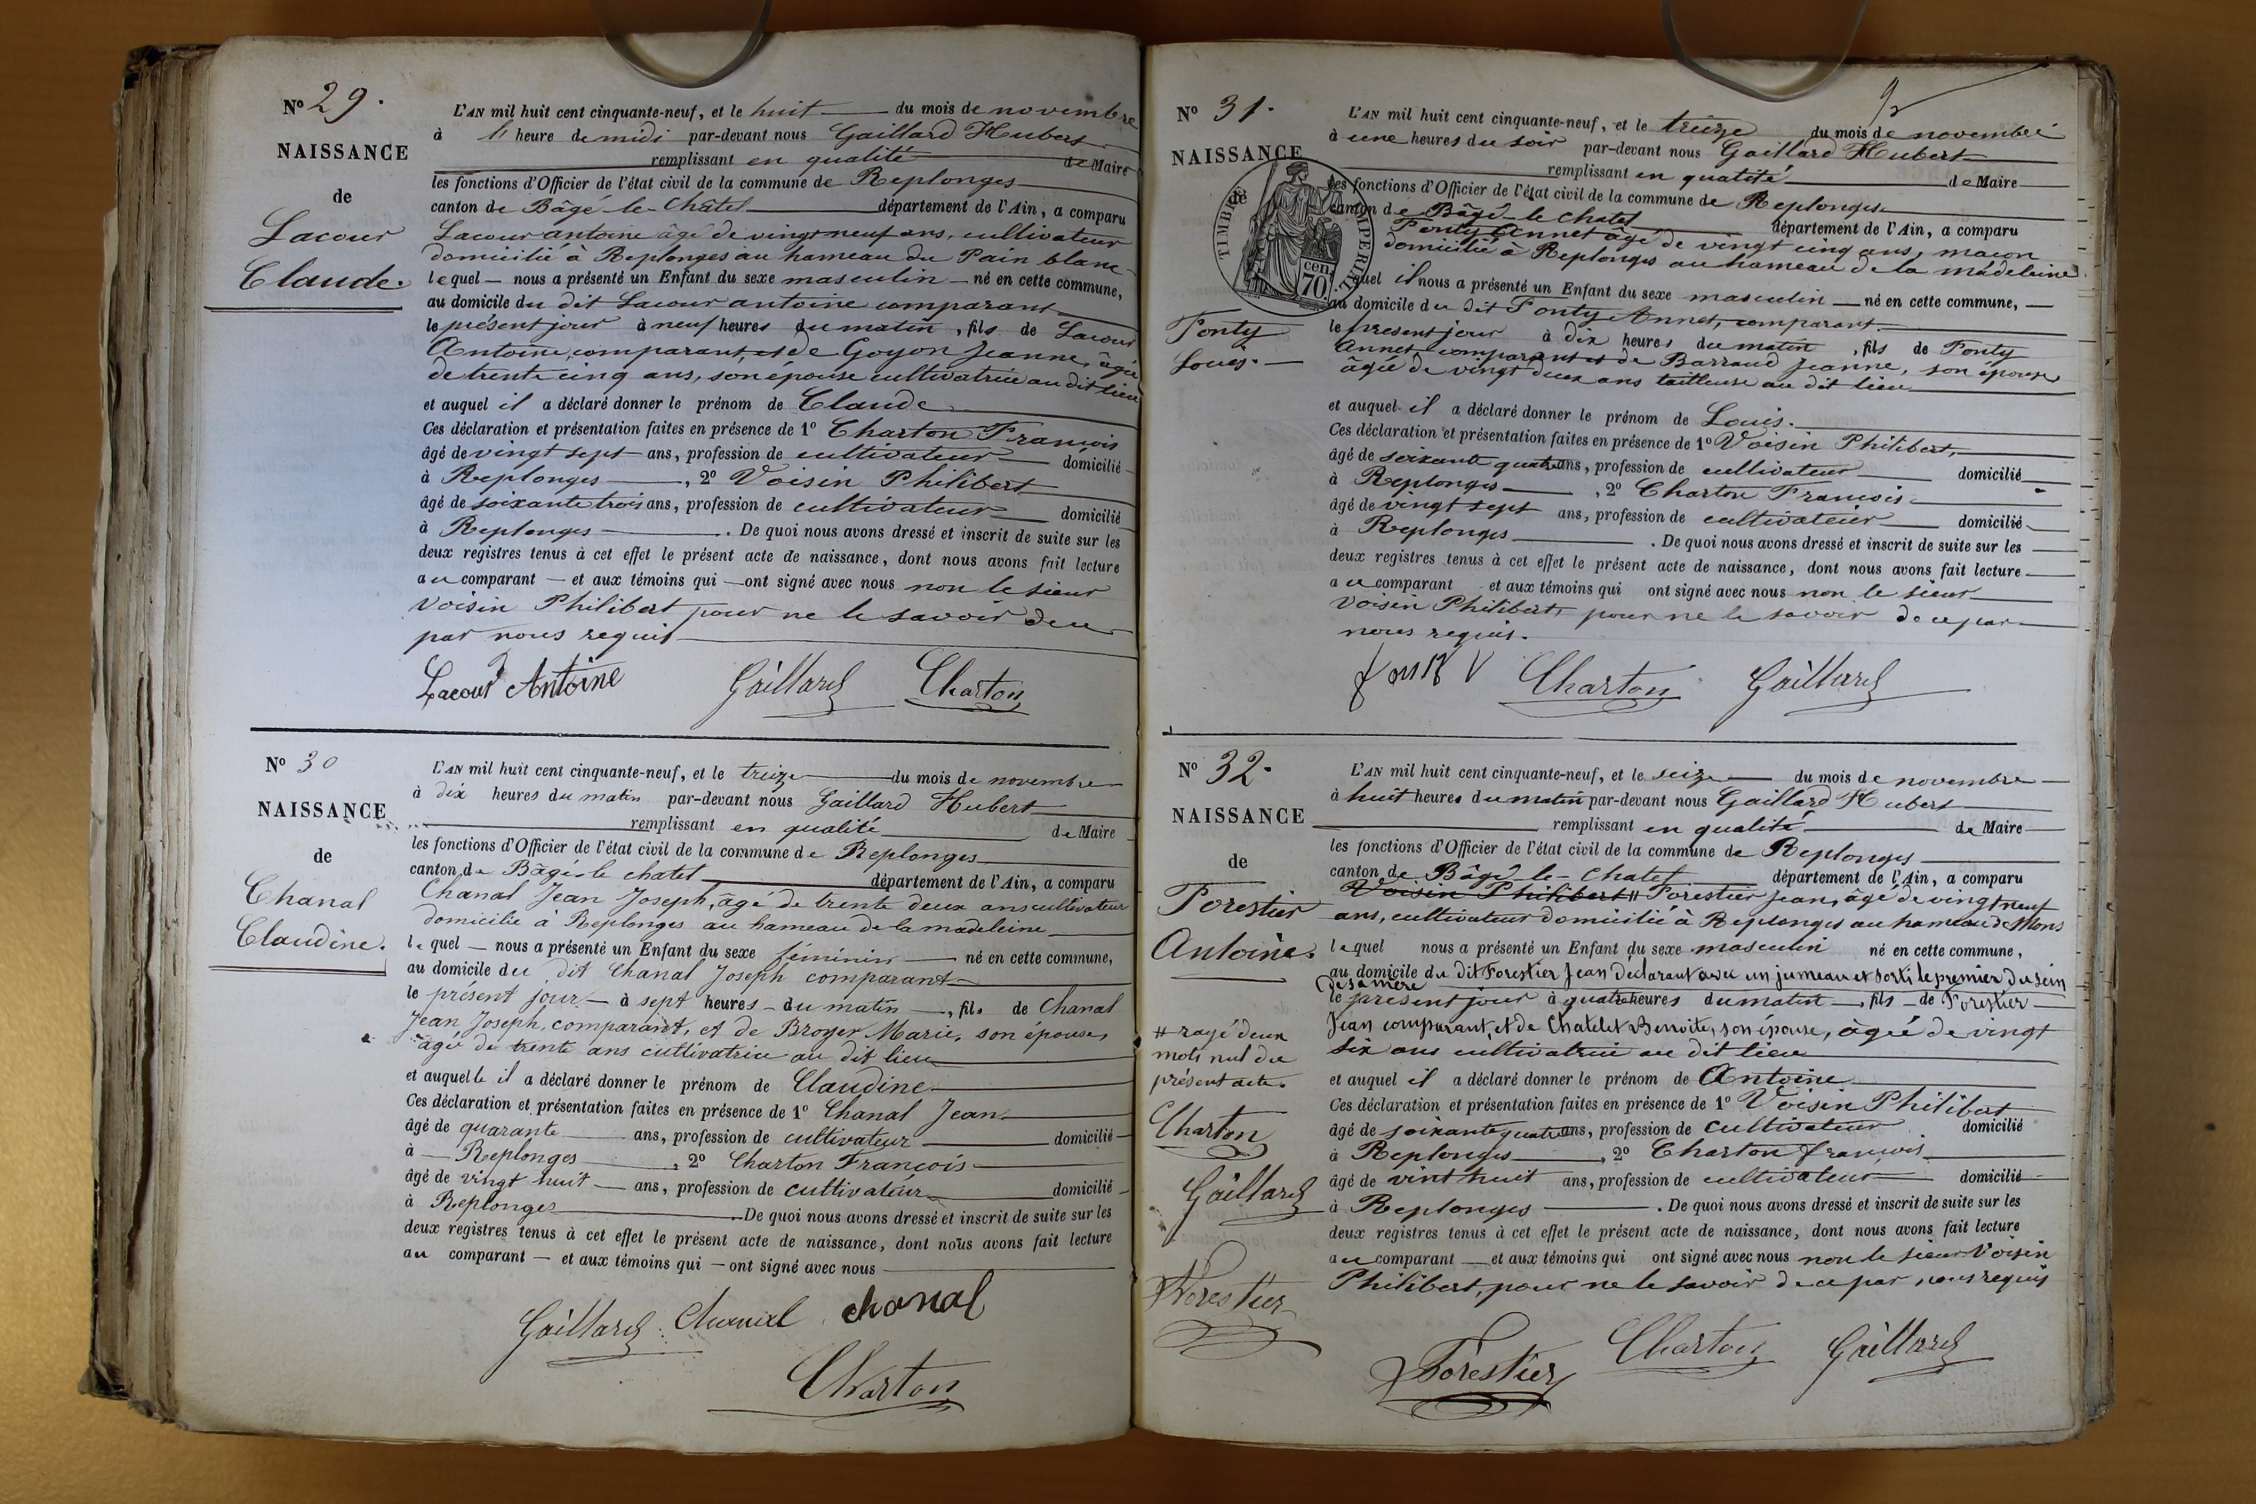 Nº 29.
NAISSANCE
de
Lacour
Claude.
L'AN mil huit cent cinquante-neuf, et le huit du mois de novembre
à heure de midi par-devant nous Gaillard Hubert
remplissant en qualité de Maire
les fonctions d'Officier de l'état civil de la commune de Replonges
canton de Bâgé-le-Châtel département de l'Ain, a comparu
Lacour antoine âgé de vingt neuf ans, cultivateur
domicilié à Replonges au hameau du Pain blanc
lequel — nous a présenté un Enfant du sexe masculin — né en cette commune,
au domicile du dit Lacour antoine comparant
le présent jour à neuf heures du matin, fils de Lacour
Antoine, comparant, et de Goyon Jeanne, âgée
de trente cinq ans, son épouse cultivatrice au dit lieu
et auquel il a déclaré donner le prénom de Claude
Ces déclaration et présentation faites en présence de 1º Charton François
âgé de vingt sept ans, profession de cultivateur domicilié
à Replonges, 2º Voisin Philibert
âgé de soixante trois ans, profession de cultivateur domicilié
à Replonges. De quoi nous avons dressé et inscrit de suite sur les
deux registres tenus à cet effet le présent acte de naissance, dont nous avons fait lecture
au comparant — et aux témoins qui — ont signé avec nous non le sieur
Voisin Philibert pour ne le savoir de ce
par nous requis
Lacour Antoine Gaillard Charton
Nº 30
NAISSANCE
de
Chanal
Claudine.
L'AN mil huit cent cinquante-neuf, et le treize du mois de novembre
à dix heures du matin par-devant nous Gaillard Hubert
remplissant en qualité de Maire
les fonctions d'Officier de l'état civil de la commune de Replonges
canton de Bâgé-le chatel département de l'Ain, a comparu
Chanal Jean Joseph, âgé de trente deux ans cultivateur
domicilié à Replonges au hameau de la madeleine
lequel — nous a présenté un Enfant du sexe féminin — né en cette commune,
au domicile du dit Chanal Joseph comparant
le présent jour — à sept heures du matin —, fils de Chanal
Jean Joseph, comparant, et de Broyer Marie, son épouse,
âgée de trente ans cultivatrice au dit lieu
et auquelle il a déclaré donner le prénom de Claudine
Ces déclaration et présentation faites en présence de 1º Chanal Jean
âgé de quarante ans, profession de cultivateur domicilié
à Replonges, 2º Charton François
âgé de vingt huit ans, profession de cultivateur domicilié
à Replonges De quoi nous avons dressé et inscrit de suite sur les
deux registres tenus à cet effet le présent acte de naissance, dont nous avons fait lecture
au comparant — et aux témoins qui — ont signé avec nous
Gaillard Chanal chanal
Charton
Nº 31.
NAISSANCE
de
TIMBRE IMPERIAL
cen. 70
Ponty
Louis.
L'AN mil huit cent cinquante-neuf, et le treize du mois de novembre
à une heures du soir par-devant nous Gaillard Hubert
remplissant en qualité de Maire
les fonctions d'Officier de l'état civil de la commune de Replonges
canton de Bâgé-le chatel département de l'Ain, a comparu
Ponty Annet âgé de vingt cinq ans, maçon
domicilié à Replonges au hameau de la madeleine
lequel il nous a présenté un Enfant du sexe masculin — né en cette commune,
au domicile du dit Ponty Annet, comparant
le présent jour à dix heures du matin, fils de Ponty
Annet comparant et de Barraud Jeanne, son épouse
âgée de vingt deux ans tailleuse au dit lieu
et auquel il a déclaré donner le prénom de Louis.
Ces déclaration et présentation faites en présence de 1º Voisin Philibert,
âgé de soixante quatre ans, profession de cultivateur domicilié
à Replonges, 2º Charton François
âgé de vingt sept ans, profession de cultivateur domicilié
à Replonges. De quoi nous avons dressé et inscrit de suite sur les
deux registres tenus à cet effet le présent acte de naissance, dont nous avons fait lecture
au comparant et aux témoins qui ont signé avec nous non le sieur
Voisin Philibert, pour ne le savoir de ce par
nous requis.
Charton Gaillard
Nº 32.
NAISSANCE
de
Forestier
Antoine.
# rayé deux
mots nul du
présent acte.
Charton
Gaillard
Forestier
L'AN mil huit cent cinquante-neuf, et le seize du mois de novembre
à huit heures du matin par-devant nous Gaillard Hubert
remplissant en qualité de Maire
les fonctions d'Officier de l'état civil de la commune de Replonges
canton de Bâgé-le-Chatel département de l'Ain, a comparu
Voisin Philibert # Forestier Jean, âgé de vingt neuf
ans, cultivateur domicilié à Replonges au hameau de Mons
lequel nous a présenté un Enfant du sexe masculin né en cette commune,
au domicile du dit Forestier Jean Declarant avec un jumeau et sorti le premier du sein
de sa mère
le présent jour à quatre heures du matin, fils de Forestier
Jean comparant, et de Chatelet Benoite, son épouse, âgée de vingt
six ans cultivatrice au dit lieu
et auquel il a déclaré donner le prénom de Antoine
Ces déclaration et présentation faites en présence de 1º Voisin Philibert
âgé de soixante quatre ans, profession de cultivateur domicilié
à Replonges, 2º Charton francois
âgé de vint huit ans, profession de cultivateur domicilié
à Replonges. De quoi nous avons dressé et inscrit de suite sur les
deux registres tenus à cet effet le présent acte de naissance, dont nous avons fait lecture
au comparant — et aux témoins qui ont signé avec nous non le sieur Voisin
Philibert, pour ne le savoir de ce par nous requis
Forestier Charton Gaillard